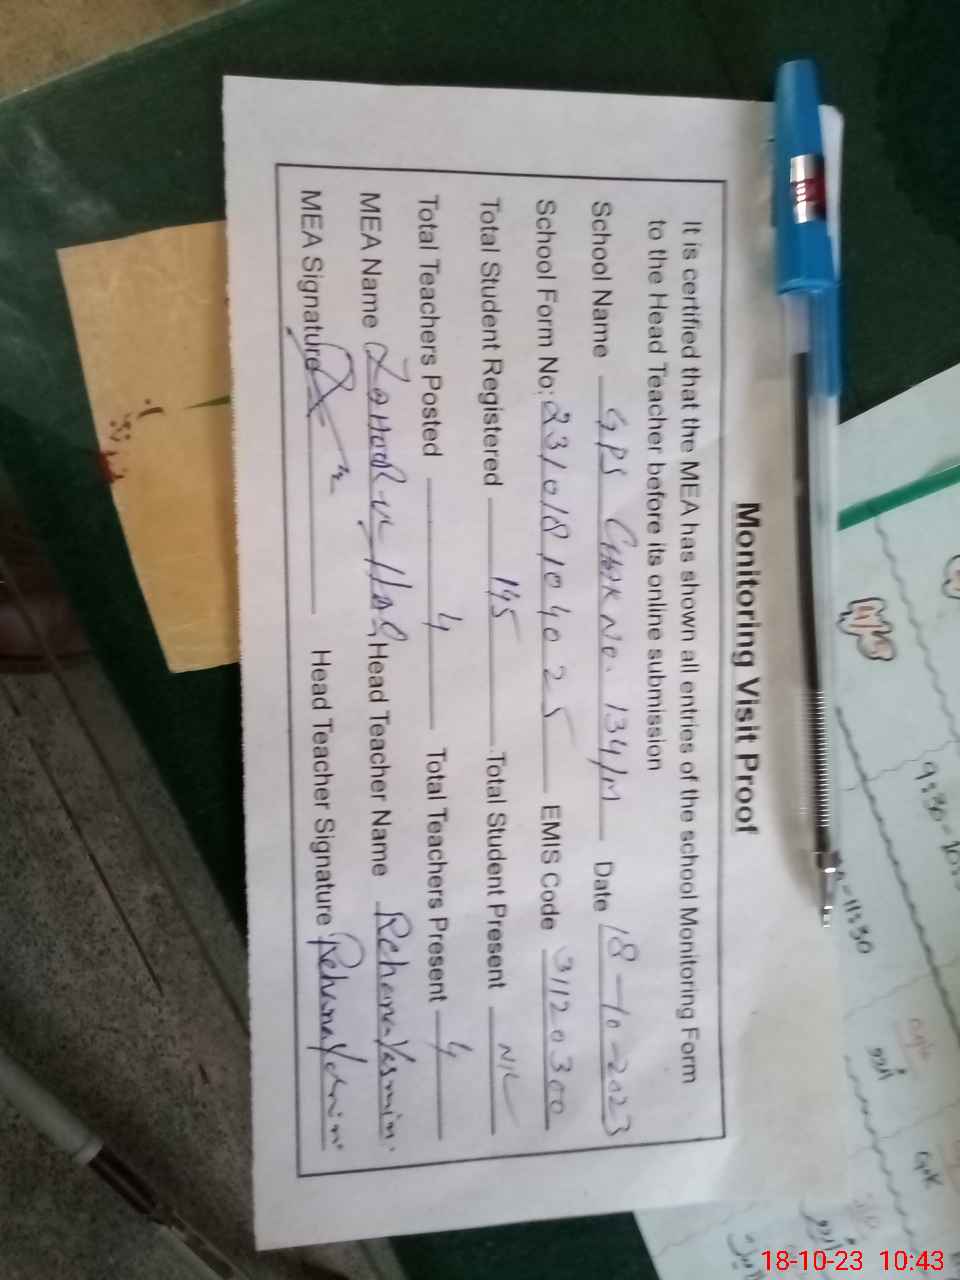 Monitoring Visit Proof
It is certified that the MEA has shown all entries of the school Monitoring Form
to the Head Teacher before its online submission
School Name GPS Chak No. 134/M Date 18-10-2023
School Form No: 23101810 4025 EMIS Code 31120300
Total Student Registered 145 Total Student Present NIL
Total Teachers Posted 4 Total Teachers Present 4
MEA Name Head Teacher Name Rehana Yasmin.
MEA Signature Head Teacher Signature Rehana Yasmin
9:30-10:
-11:30
اردو
18-10-23 10:43